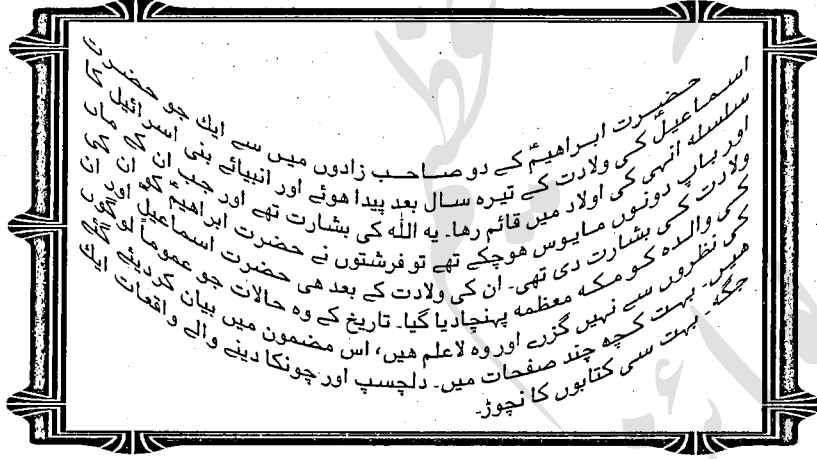 حضرت ابراهیمؑ کے دو صاحب زادوں میں سے ایك جو حضرت
اسماعیلؑ کی ولادت کے تیره سال بعد پیدا هوئے اور انبیائے بنی اسرائیل کا
سلسله انهی کی اولاد میں قائم رها۔ یه الله کی بشارت تھے اور جب ان کے ماں
اور باپ دونوں مایوس هوچکے تھے تو فرشتوں نے حضرت ابراهیمؑ کو ان کی
ولادت کی بشارت دی تھی۔ ان کی ولادت کے بعد هی حضرت اسماعیلؑ اور ان
کی والده کو مکه معظمه پهنچادیا گیا۔ تاریخ کے وه حالات جو عموماً لوگوں
کی نظروں سے نهیں گزرے اور وه لاعلم هیں، اس مضمون میں بیان کردیئے گئے
هیں۔ بهت کچه چند صفحات میں۔ دلچسپ اور چونکا دینے والے واقعات ایك
جگه۔ بهت سی کتابوں کا نچوڑ۔